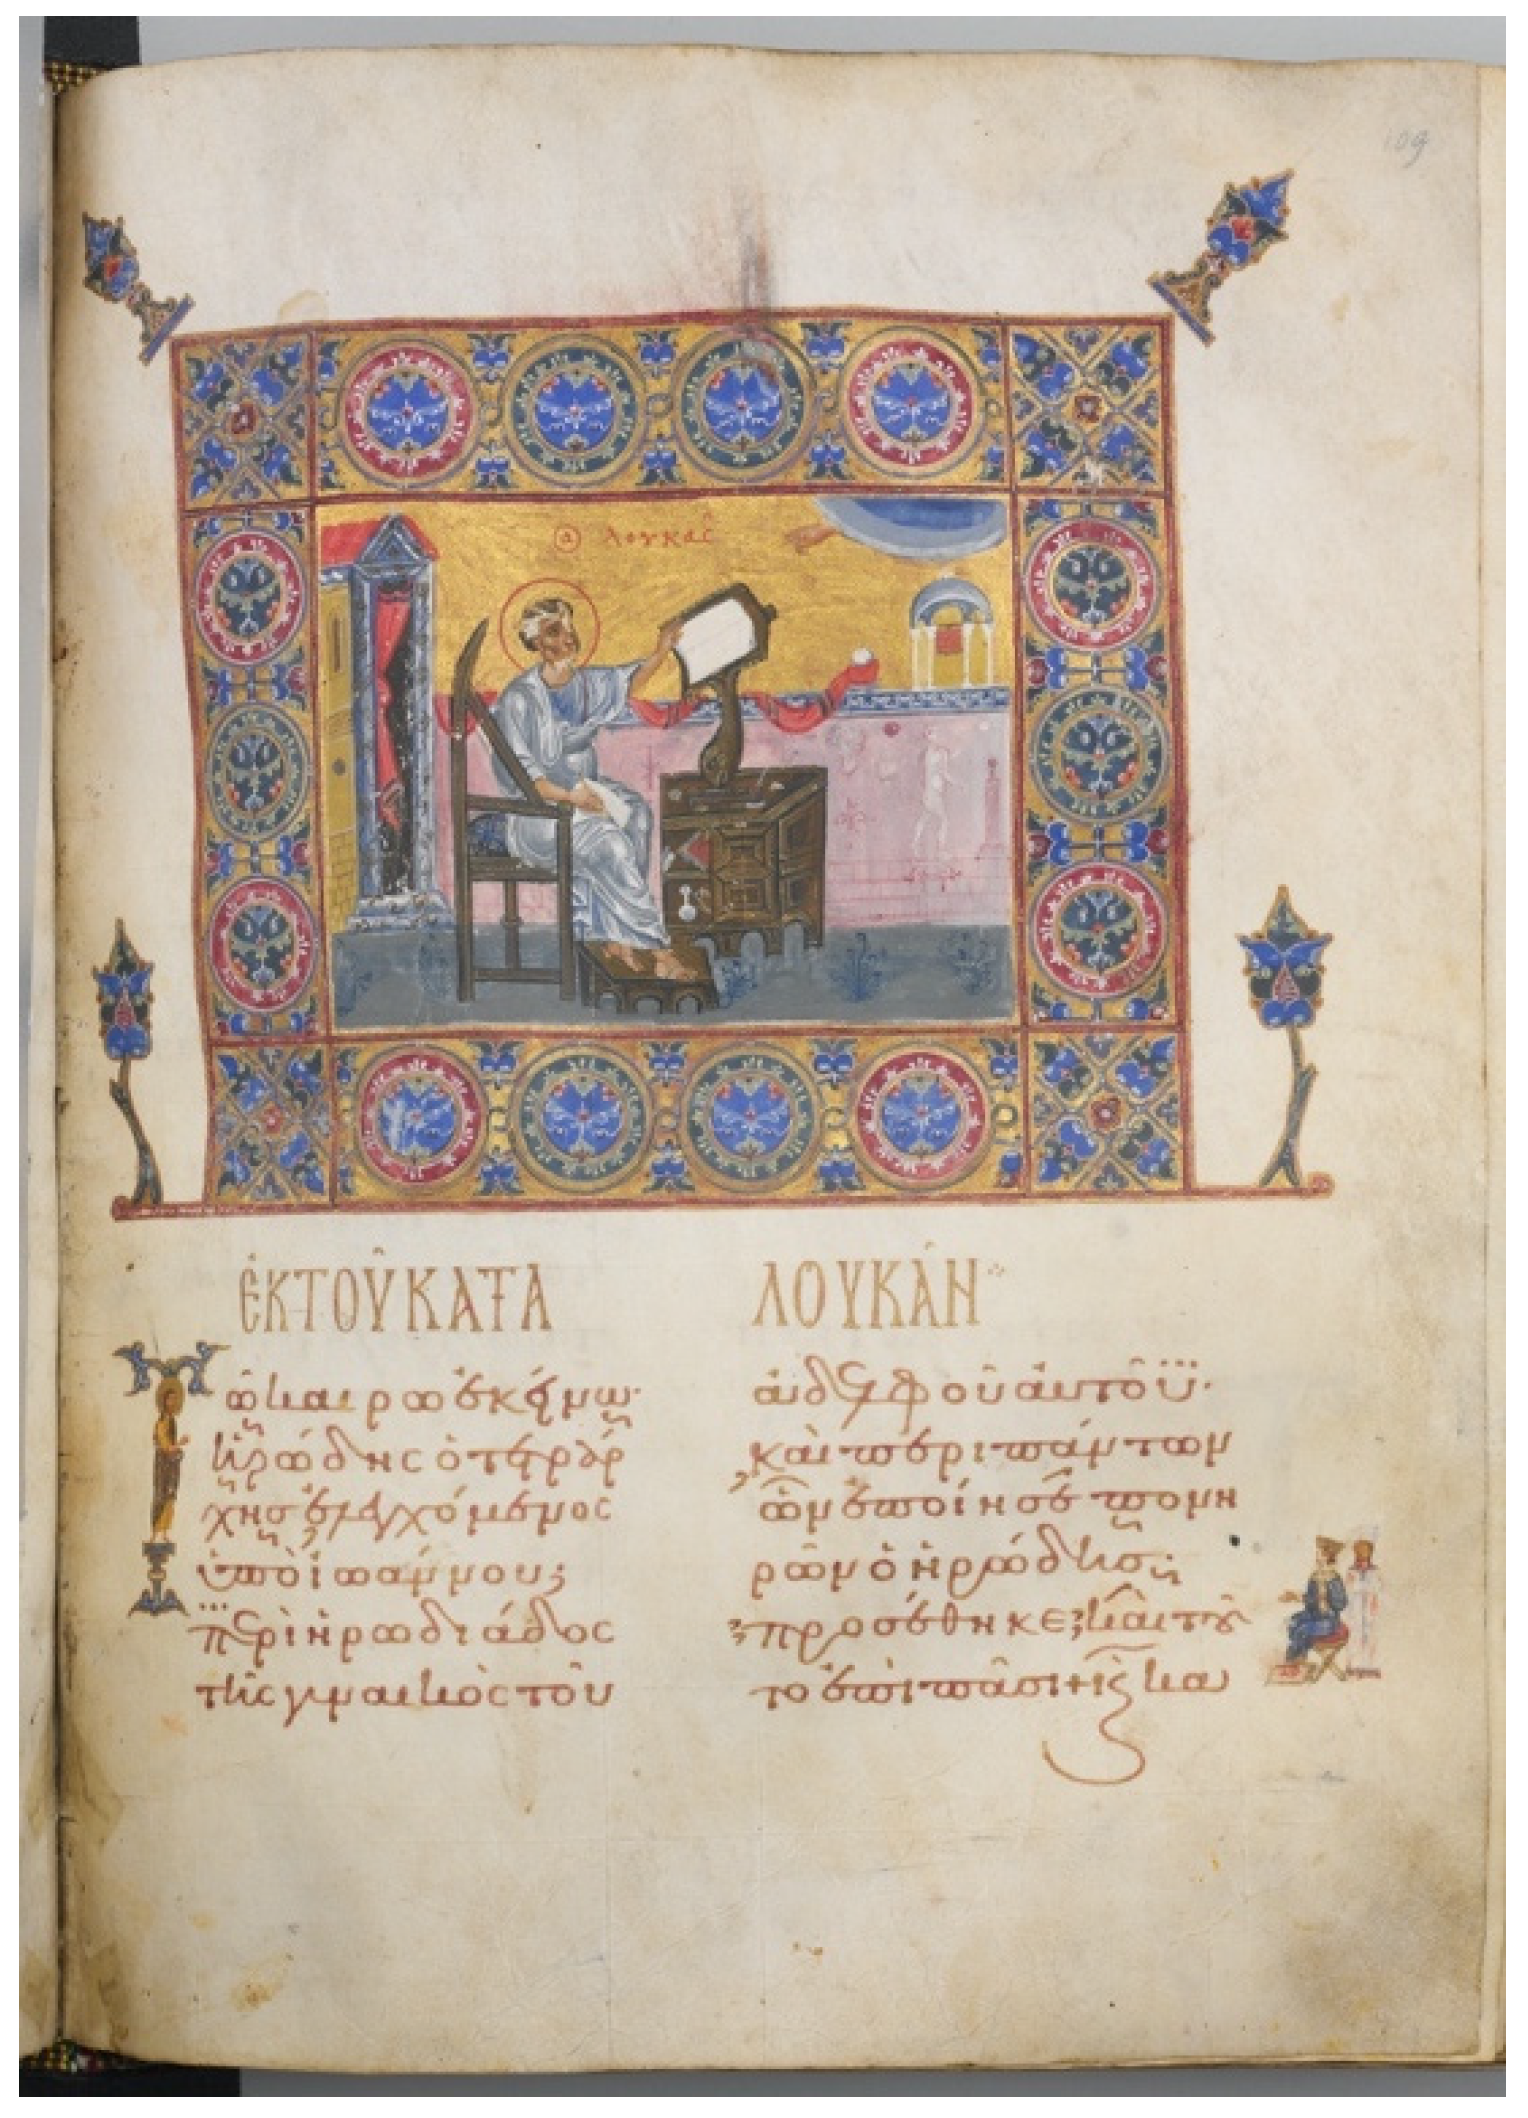 109
ⓐ λουκας
ἐκ τοῦ κατα λουκάν
Τῶ καιρῶ ἐκείνω·
ἡρώδης ὁ τετράρ
χης ἐλεγχόμενος
ὑπὸ ἰωάννου;
περὶ ἡρωδιάδος
τῆς γυναικὸς τοῦ
ἀδελφοῦ ἀυτοῦ·
καὶ περι πάντων
ὧν ἐποίησε πονη
ρῶν ὁ ἡρώδης;
προσέθηκε; καὶ τοῦ
το ἐπι πᾶσι + κα